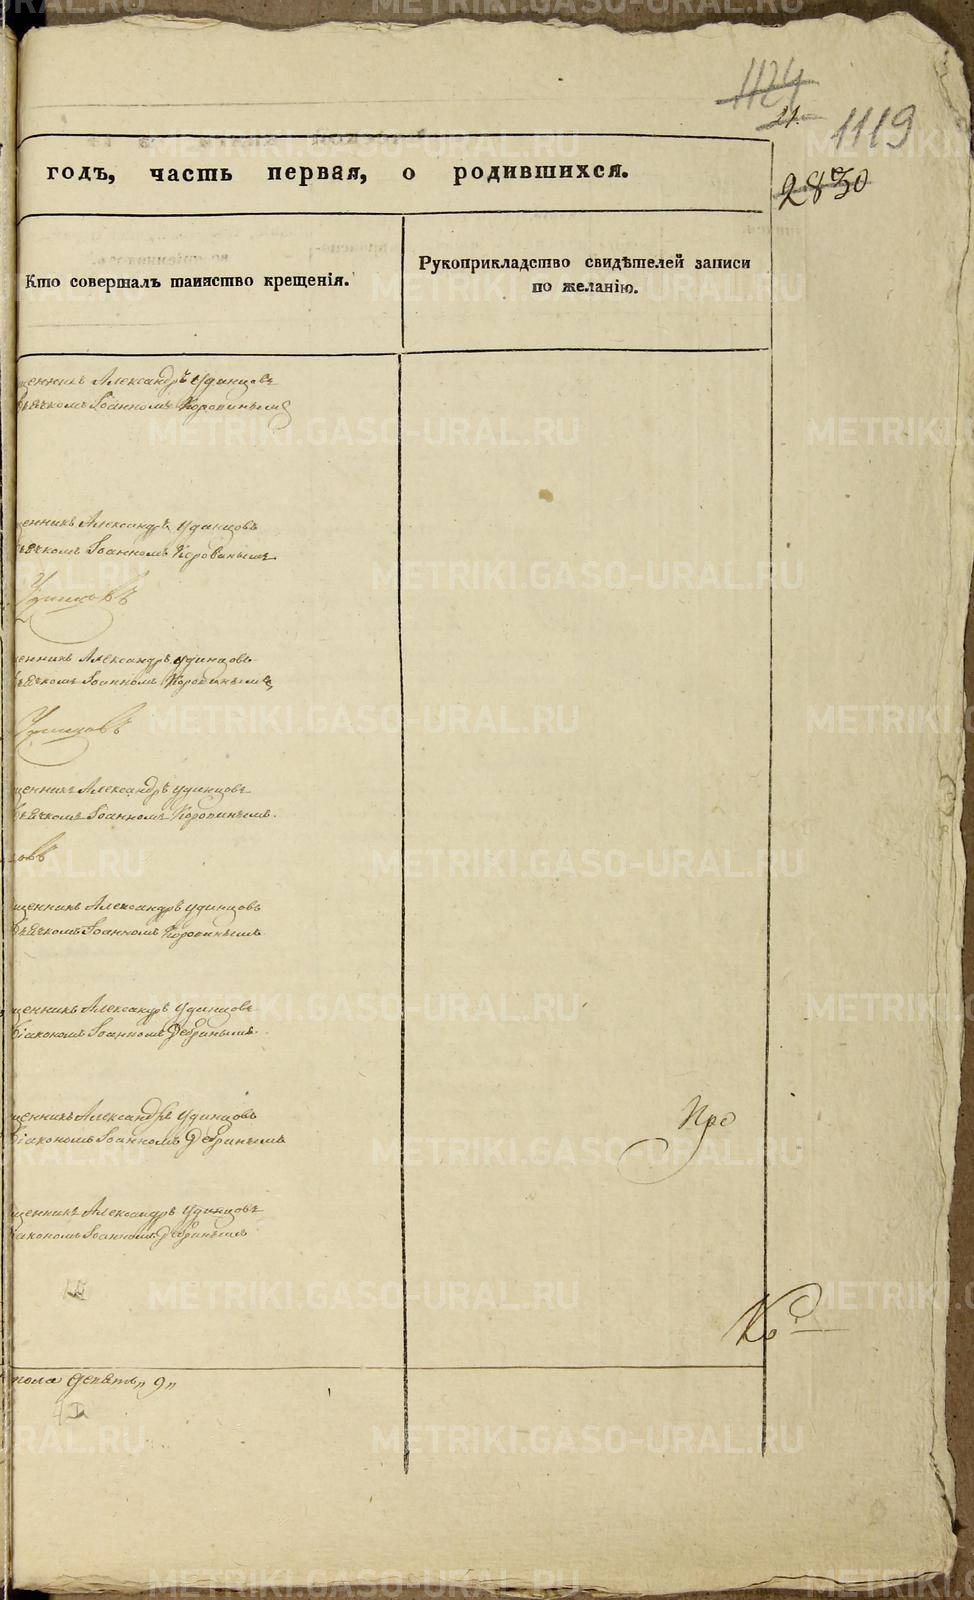 1124
21.
1119
2830
годъ, часть первая, о родившихся.
Кто совершалъ таинство крещенія.
Рукоприкладство свидѣтелей записи
по желанію.
щенникъ Александръ Удинцовъ
ьячкомъ Іоанномъ Коровинымъ
щенникъ Александръ Удинцовъ
ьячкомъ Іоанномъ Коровинымъ
щенникъ Александръ Удинцовъ
ьячкомъ Іоанномъ Коровинымъ
щенникъ Александръ Удинцовъ
ьячкомъ Іоанномъ Коровинымъ.
щенникъ Александръ Удинцовъ
ьячкомъ Іоанномъ Коровинымъ
щенникъ Александръ Удинцовъ
діакономъ Іоанномъ
щенникъ Александръ Удинцовъ
діакономъ Іоанномъ
Про
щенникъ Александръ Удинцовъ
іакономъ Іоанномъ
пола девять „9„
METRIKI.GASO-URAL.RU